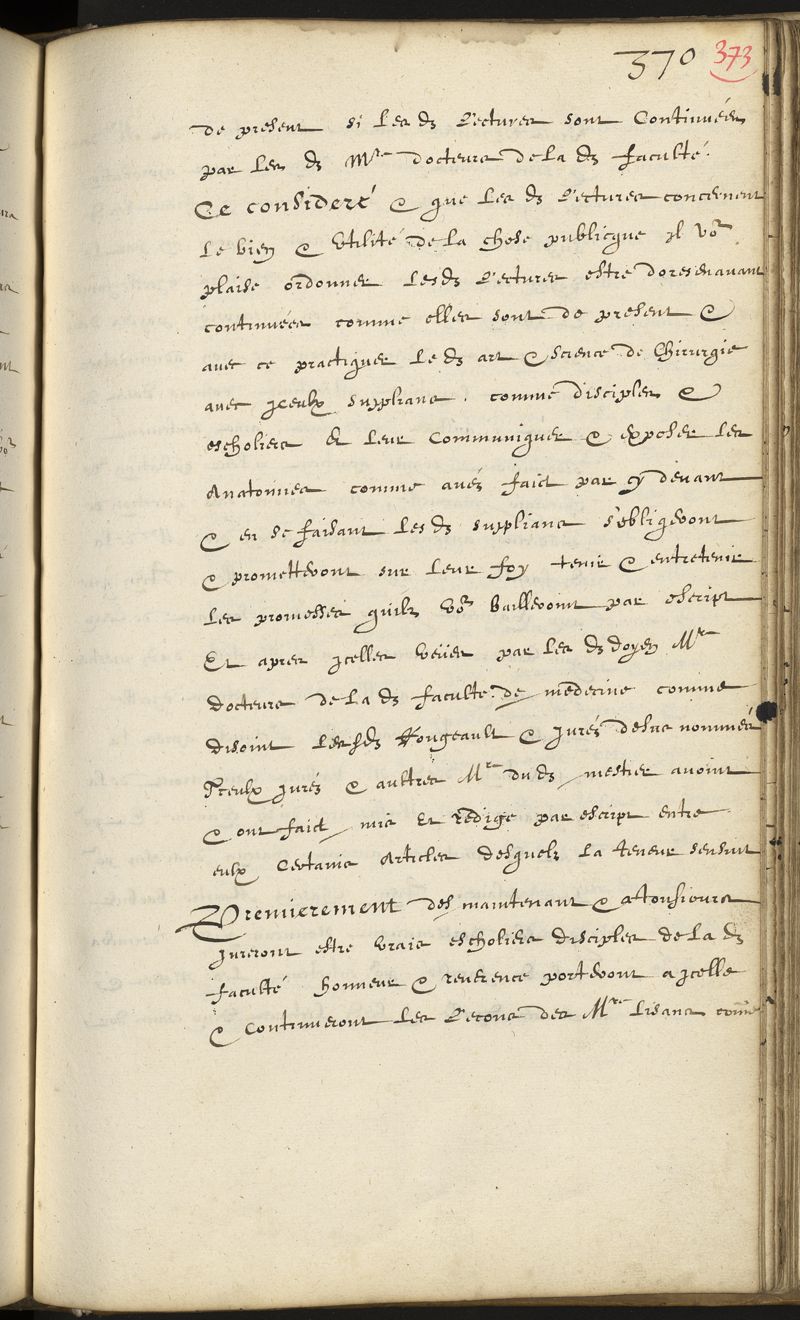 370 373
de present si les ds Lectures sont Continuées
par les ds Mrs docteurs de la ds faculté.
Ce consideré & que les ds Lectures concernent
le bien & Utilité de la chose publicque Il vos
plaise ordonner lesds Lectures estre doresenavant
continuées comme elles sont de present &
avec ce practiquer le ds art & science de Chirurgie
avec Iceulx supplians . comme disciples &
escholiers Et leur Communiquer & exposer les
Anatomies comme avés faict par cy devant
& en se faisant lesds supplians s'obligeront
& promettront sur leur foy tenir & entretenir
les promesses quilz vos bailleront par escript
Et apres Icelles veües par les ds doyen Mrs
docteurs de la ds faculté de medecine comme
disoint lesds Rougeault & Jurés desus nommés
Iceulx jurés & aultres Mrs duds mestier avoint
& ont faict mis Et redigé par escript entre
eulx Certains Articles desquelz la teneur sensuit
Premierement des maintenant & a tousiours
jureront estre vrais escholiers disciples de la ds
faculté honneur & reverence porteront a Icelle
& Continueront les Leçons des Mrs lisans come